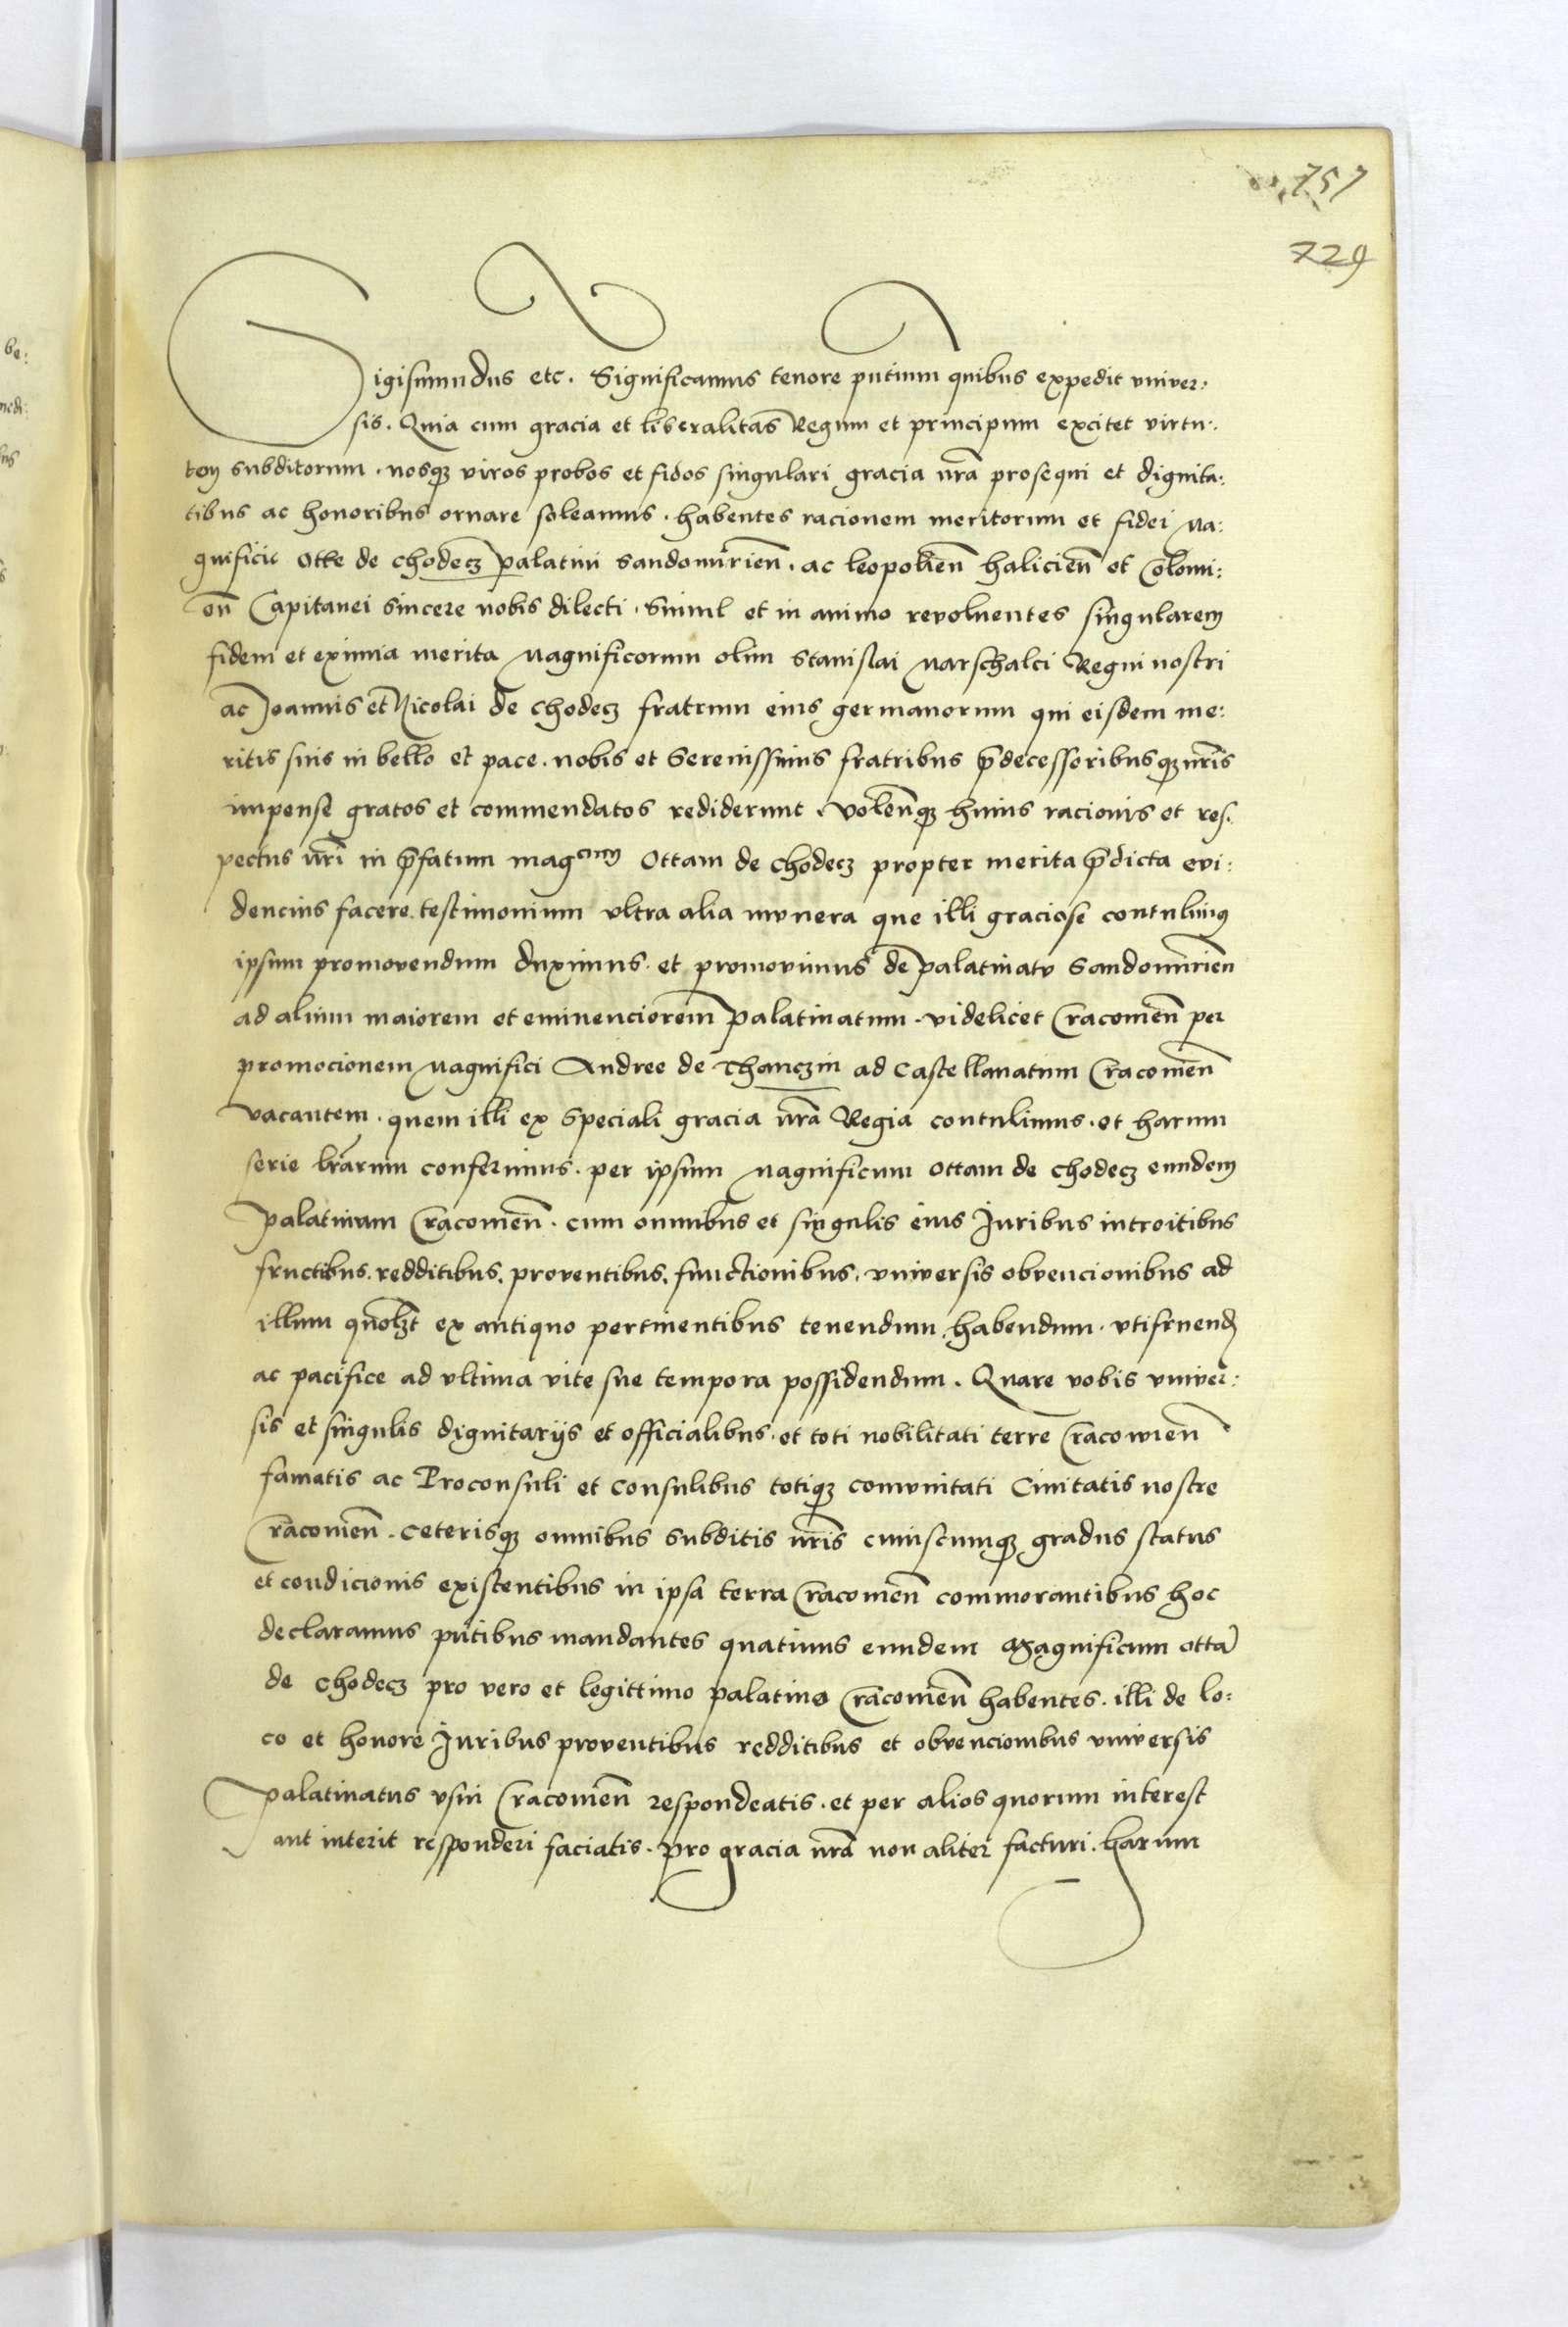 757
729
Sigismundus etc. Significamus tenore pntium quibus expedit vniver:
sis. Quia cum gracia et liberalitas Regum et principum excitet virtu:
tem subditorum. nosqꝫ viros probos et fidos singulari gracia nrã prosequi et dignita:
tibus ac honoribus ornare soleamus. habentes racionem meritorum et fidei Ma:
gnificii Otte de Chodecz palatini Sandomirieñ. ac leopolieñ halicieñ et Colomi:
eñ Capitanei sincere nobis dilecti. Simul et in animo revoluentes singularem
fidem et eximia merita Magnificorum olim Stanislai Marschalci Regni nostri
ac Joannis et Nicolai de Chodecz fratrum eius germanorum qui eisdem me:
ritis suis in bello et pace. nobis et Serenissimis fratribus p̃decessoribusqꝫ nr̃is
impense gratos et commendatos rediderunt. Voleñqꝫ huius racionis et res:
pectus nr̃i in p̃fatum magcum Ottam de Chodecz propter merita p̃dicta evi:
dencius facere testimonium vltra alia mvnera que illi graciose contulimus
ipsum promovendum duximus. et promovimus de palatinatv Sandomirieñ
ad alium maiorem et eminenciorem palatinatum. videlicet Cracovieñ per
promocionem Magnifici Andree de Thanczin ad Castellanatum Cracovieñ
vacantem. quem illi ex speciali gracia nrã Regia contulimus. et harum
serie lrãrum conferimus. per ipsum Magnificum Ottam de Chodecz eundem
palatinatum Cracovieñ. cum omnibus et singulis eius Juribus introitibus
fructibus. redditibus, proventibus, functionibus, vniversis obvencionibus ad
illum quolꝫt ex antiquo pertinentibus tenendum, habendum. vtifruend̃
ac pacifice ad vltima vite sue tempora possidendum. Quare vobis vniver:
sis et singulis dignitariis et officialibus. et toti nobilitati terre Cracovieñ
famatis ac Proconsuli et Consulibus totiqꝫ comvnitati Civitatis nostre
Cracovieñ. Ceterisqꝫ omnibus subditis nr̃is cuiuscumqꝫ gradus status
et condicionis existentibus in ipsa terra Cracovieñ commorantibus hoc
declaramus pñtibus mandantes quatinus eundem Magnificum Ottã
de Chodecz pro vero et legittimo palatino Cracovieñ habentes. illi de lo:
co et honore Juribus proventibus redditibus et obvencionibus vniversis
palatinatus vsui Cracovieñ respondeatis. et per alios quorum interest
aut interit responderi faciatis. pro gracia nrã non aliter facturi. harum